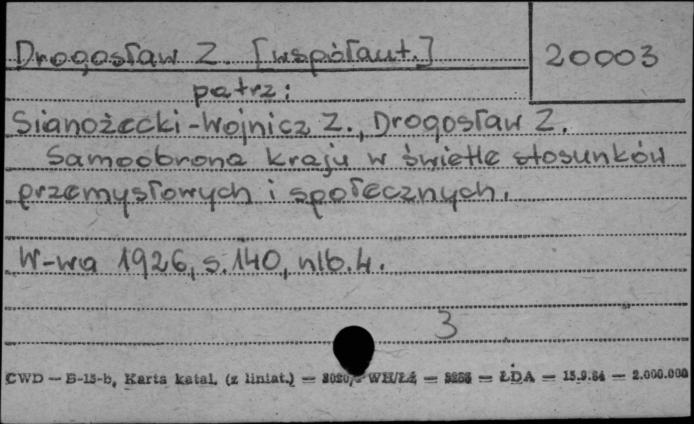 Drogosław Z. [współaut.] 20003
patrz:
Sianożęcki-Wojnicz Z., Drogosław Z.
Samoobrona kraju w świetle stosunków
przemysłowych i społecznych.
W-wa 1926, s. 140, nlb. 4.
3
CWD — B-15-b, Karta katal. (z liniat.) — WH/Łź — — ŁDA — 15.9.64 — 2.000.000